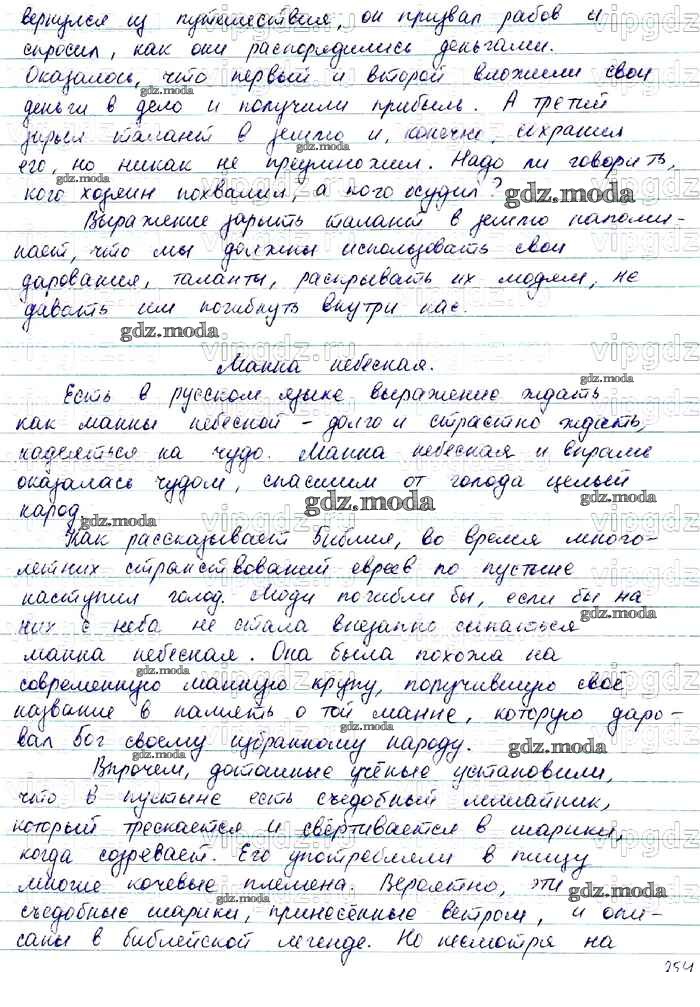 вернулся из путешествия, он призвал рабов и
спросил, как они распорядились деньгами.
Оказалось, что первый и второй вложили свои
деньги в дело и получили прибыль. А третий
зарыл талант в землю и, конечно, сохранил
его, но никак не преумножил. Надо ли говорить,
кого хозяин похвалил, а кого осудил?
Выражение зарыть талант в землю напоми-
нает, что мы должны использовать свои
дарования, таланты, раскрывать их людям, не
давать им погибнуть внутри нас.
Манна небесная.
Есть в русском языке выражение ждать
как манны небесной – долго и страстно ждать,
надеяться на чудо. Манна небесная и вправе
оказалась чудом, спасшим от голода целый
народ.
Как рассказывает Библия, во время много-
летних странствований евреев по пустыне
наступил голод. Люди погибли бы, если бы на
них с неба не стала внезапно сыпаться
манна небесная. Она была похожа на
современную манную крупу, получившую своё
название в память о той манне, которую даро-
вал Бог своему избранному народу.
Впрочем, дотошные учёные установили,
что в пустыне есть съедобный лишайник,
который трескается и свёртывается в шарики,
когда созревает. Его употребляли в пищу
многие кочевые племена. Вероятно, эти
съедобные шарики, принесённые ветром, и опи-
саны в библейской легенде. Но несмотря на
254
gdz.moda
vipgdz